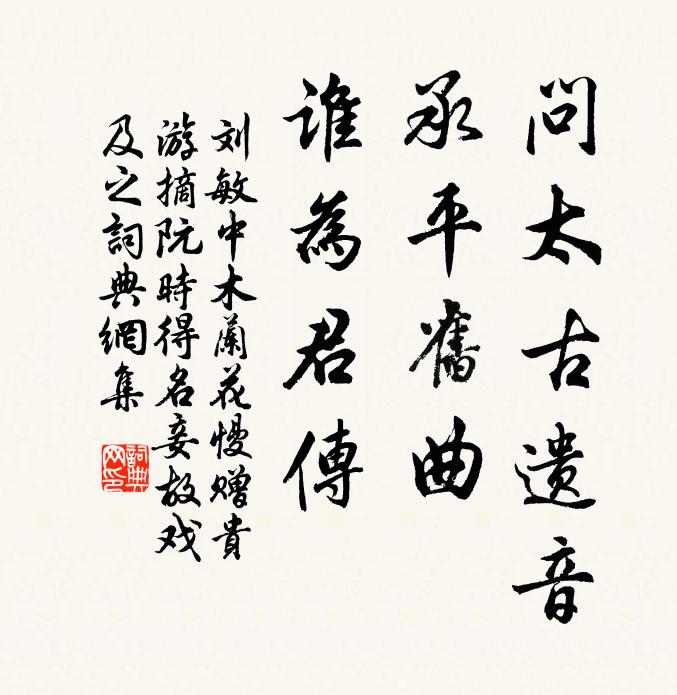 問太古遗音
承平舊曲
誰為君傳
刘敏中木蘭花慢赠貴
游摘阮時得名妾故戏
及之詞典網集
詞典网印